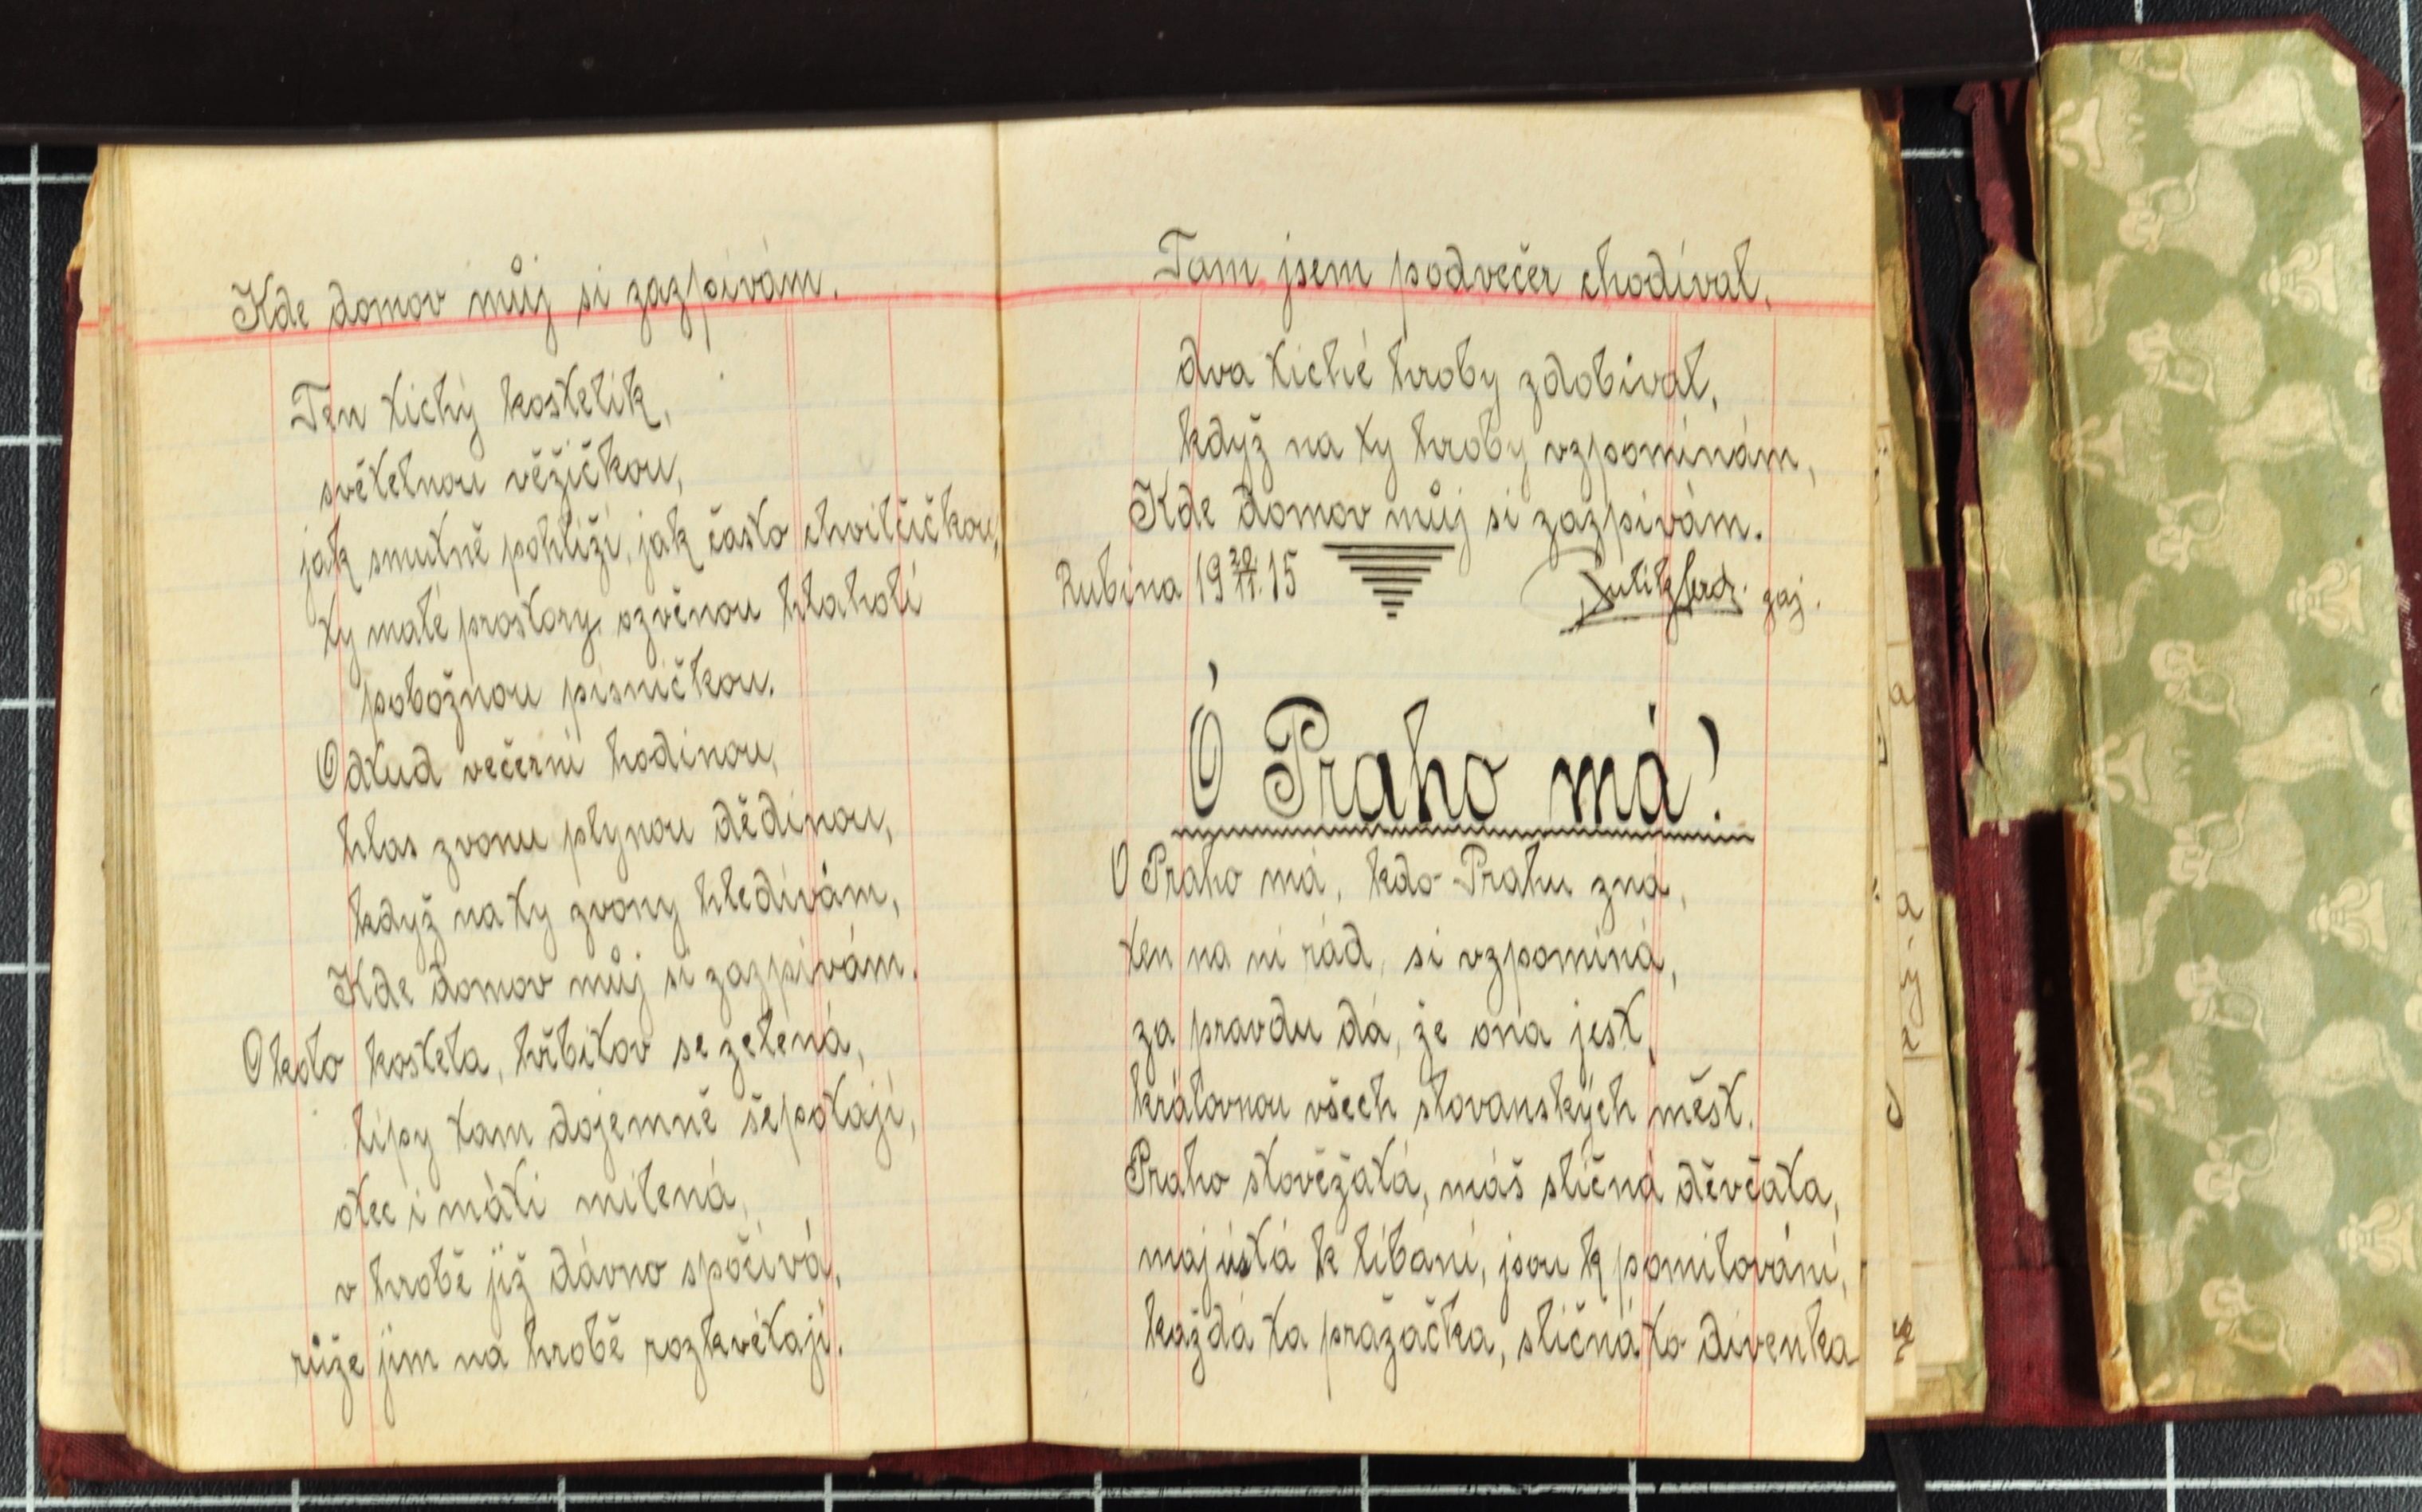 Kde domov můj si zazpívám.
Ten tichý kostelík,
světelnou věžičkou,
jak smutně pohlíží, jak často chvilčičkou,
ty malé prostory ozvěnou hlaholí
pobožnou písničkou.
Odtud večerní hodinou,
hlas zvonu plynou dědinou,
když na ty zvony hledívám,
Kde domov můj si zazpívám.
Okolo kostela, hřbitov se zelená,
lípy tam dojemně šepotají,
otec i máti milená,
v hrobě již dávno spočívá,
růže jim na hrobě rozkvétají.
Tam jsem podvečer chodíval,
dva tiché hroby zdobíval,
když na ty hroby vzpomínám,
Kde domov můj si zazpívám.
Rubina 19 20/11 15 zaj.
Ó Praho má!
O Praho má, kdo Prahu zná,
ten na ni rád, si vzpomíná,
za pravdu dá, že ona jest,
královnou všech slovanských měst.
Praho stověžatá, máš sličná děvčata,
maj ústá k líbání, jsou k pomilování,
každá ta pražačka, sličná to divenka